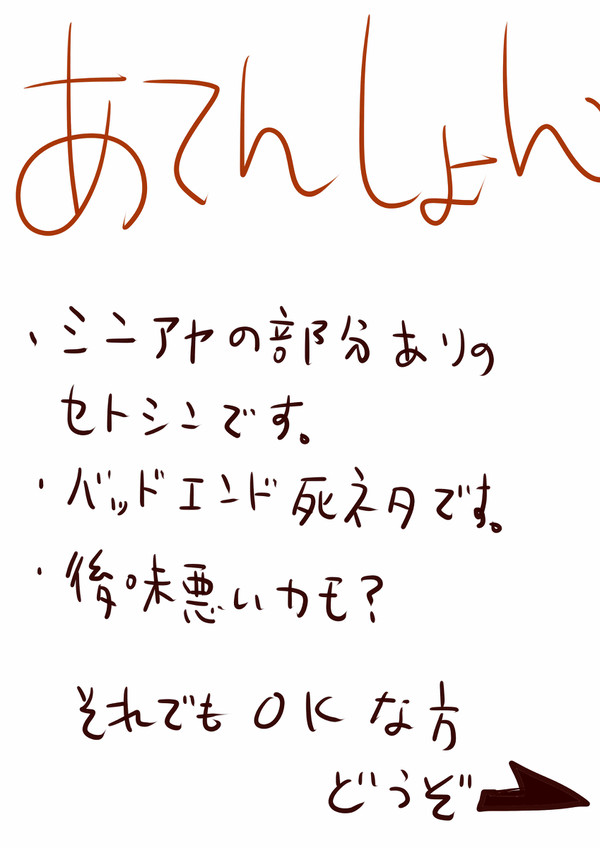 あてんしょん
・ミニアヤの部分ありの
セトシンです。
・バッドエンド死ネタです。
・後味悪いカモ？
それでもOKな方
どうぞ